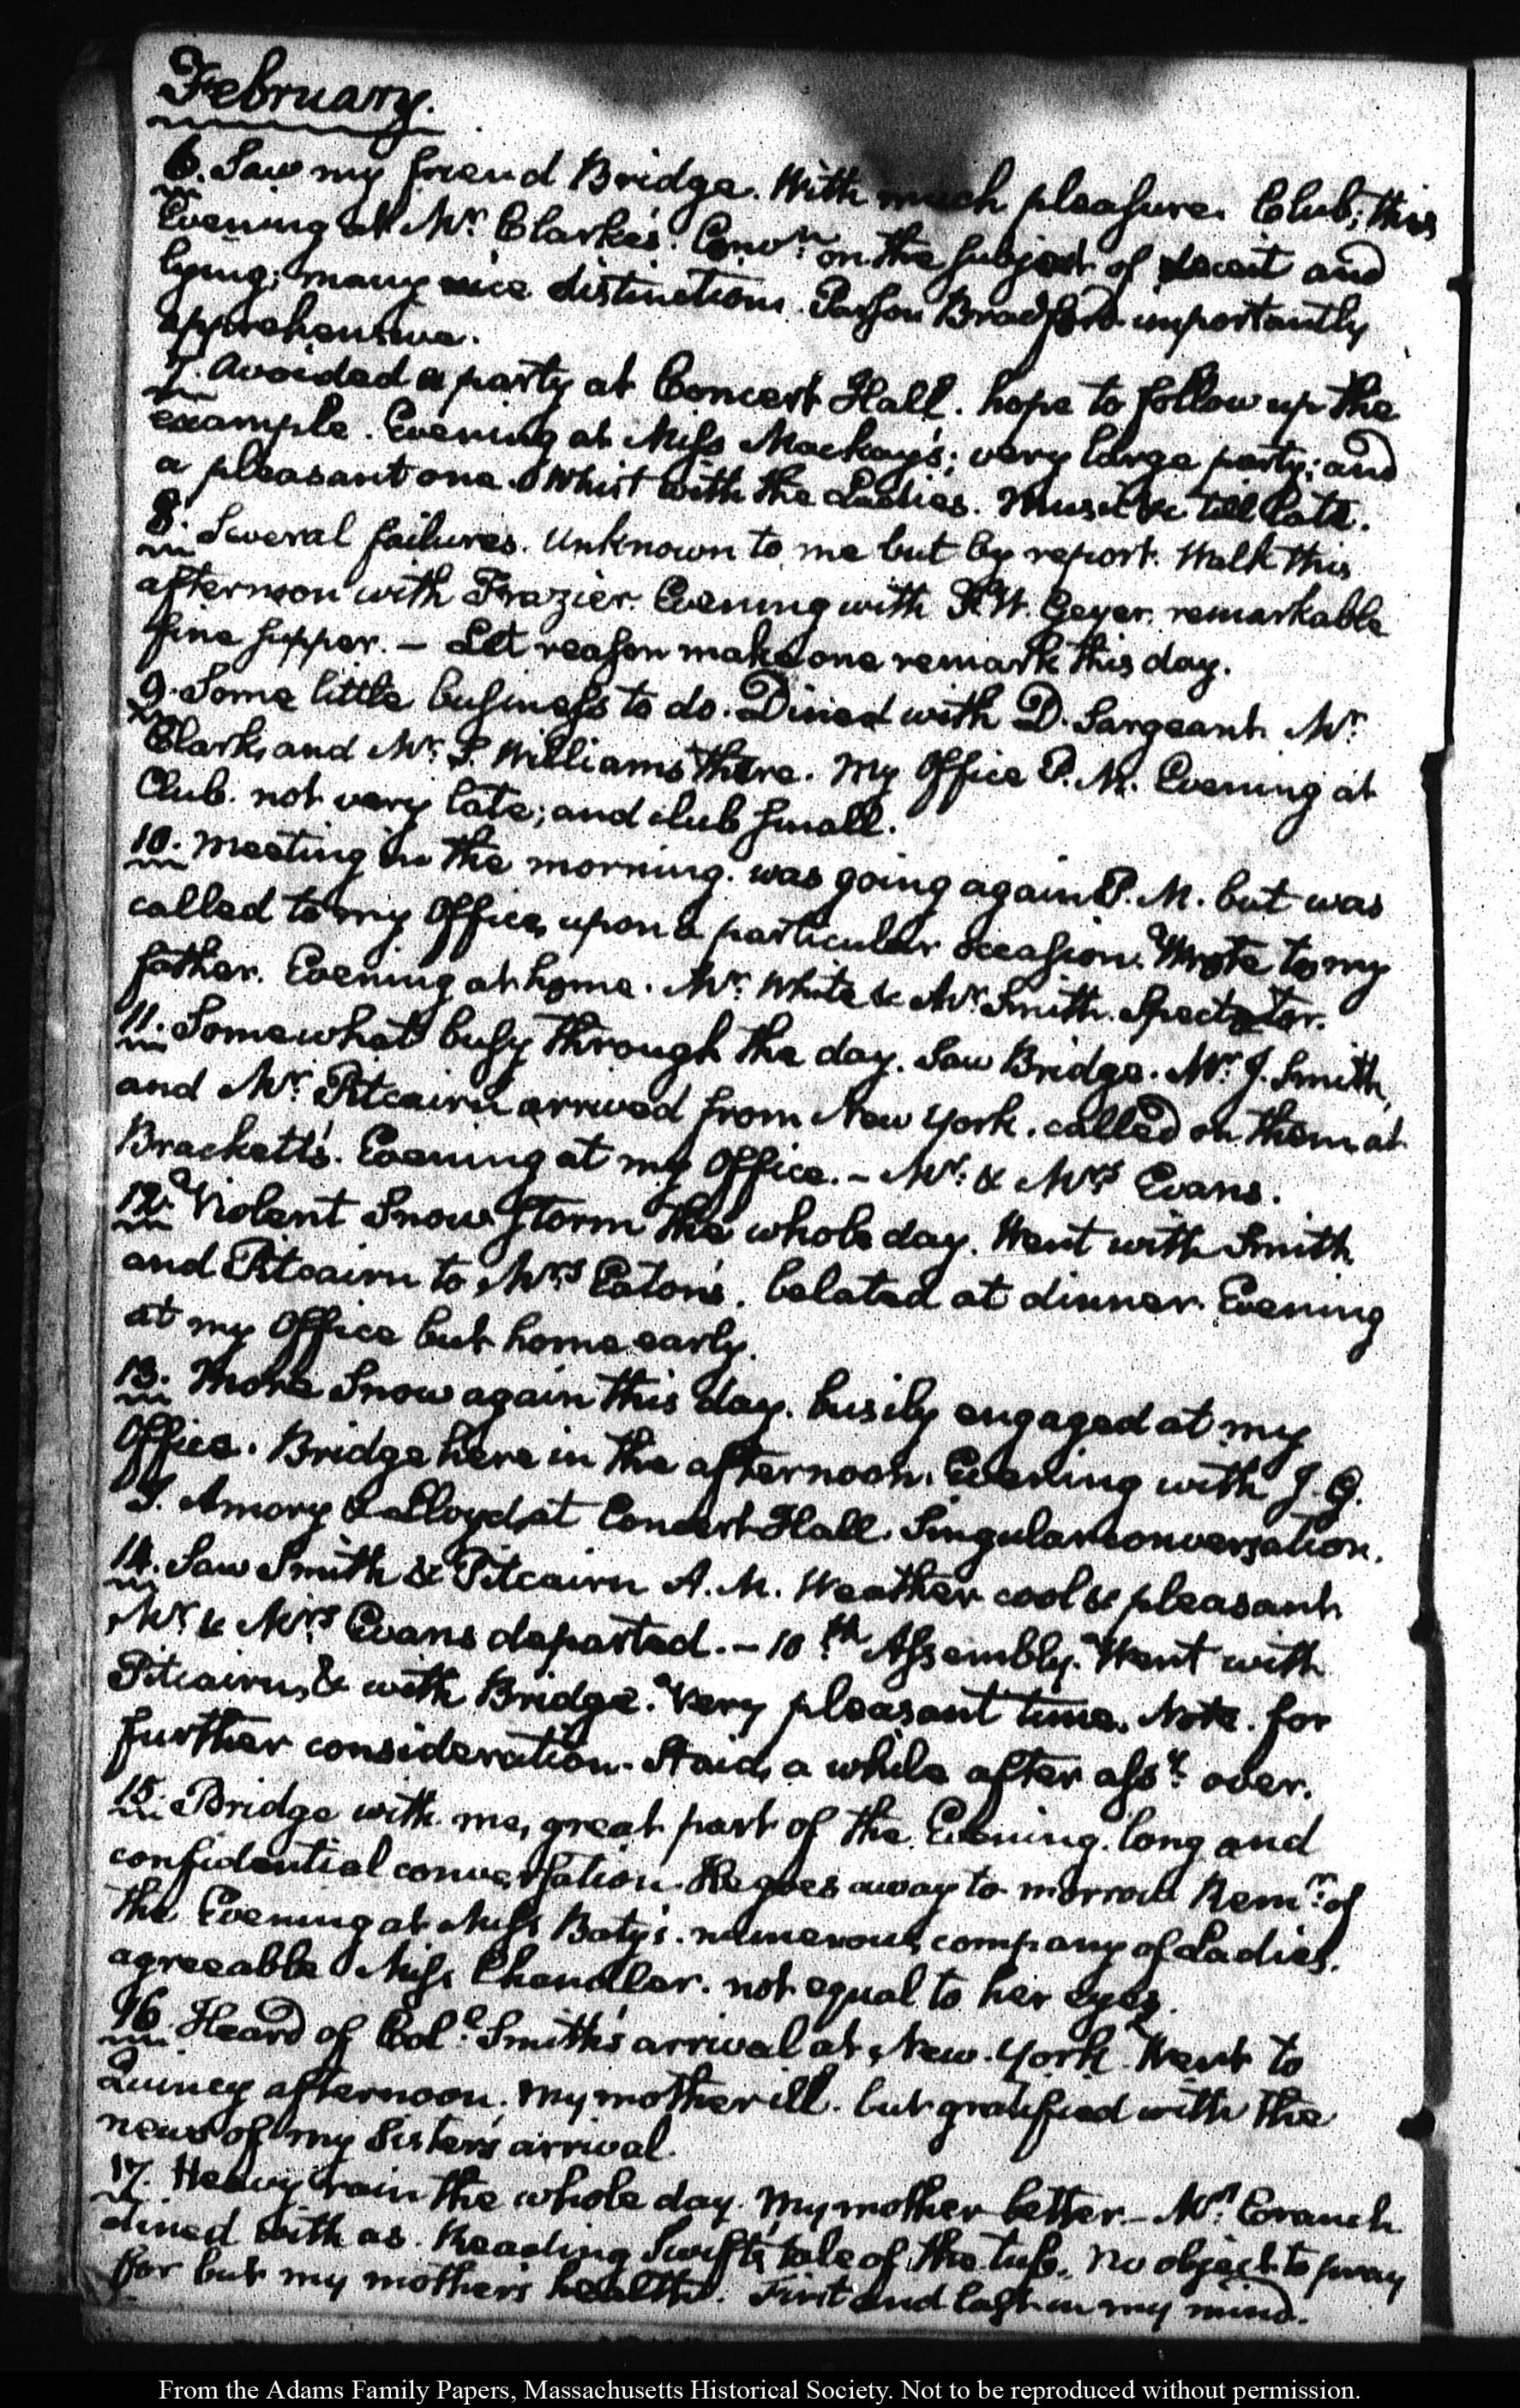 February.
6. Saw my friend Bridge. With much pleasure. Club; this
Evening at Mr. Clarke's. Convn. on the subject of deceit and
lying; many nice distinctions. Parson Bradford importantly
apprehensive.
7. Avoided a party at Concert Hall. hope to follow up the
example. Evening at Miss Mackay's; very large party; and
a pleasant one. Whist with the Ladies. Musick &c till late.
8. Several failures. Unknown to me but by report. Walk this
afternoon with Frazier. Evening with F. W. Geyer. remarkable
fine supper. — Let reason make one remark this day.
9. Some little business to do. Dined with D. Sargeant. Mr.
Clark, and Mr. S. Williams there. My Office P. M. Evening at
Club. not very late; and club small.
10. Meeting in the morning. was going again P. M. but was
called to my Office, upon a particular occasion. Wrote to my
father. Evening at home. Mr. White & Mr. Smith. Spectator.
11. Somewhat busy through the day. Saw Bridge. Mr. J. Smith,
and Mr. Pitcairn arrived from New York. called on them at
Brackett's. Evening at my Office. — Mr. & Mrs. Evans.
12. Violent Snow storm the whole day. Went with Smith
and Pitcairn to Mrs. Eaton's. belated at dinner. Evening
at my Office but home early.
13. More Snow again this day. busily engaged at my
Office. Bridge here in the afternoon. Evening with J. G.
T. Amory & Lloyd, at Concert Hall. Singular conversation.
14. Saw Smith & Pitcairn A. M. Weather cool & pleasant
Mr. & Mrs. Evans departed. — 10th. Assembly. Went with
Pitcairn, & with Bridge. Very pleasant time. Note. for
further consideration. Staid, a while after assy. over.
15. Bridge with me, great part of the Evening. long and
confidential conversation. He goes away to-morrow Remr. of
the Evening at Miss Baty's. numerous company of Ladies.
agreeable Miss Chandler. not equal to her eyes.
16. Heard of Col. Smith's arrival at New-York. Went to
Quincy afternoon. My mother ill. but gratified with the
news of my Sister's arrival.
17. Heavy rain the whole day. My mother better. — Mr. Cranch
dined with us. Reading Swift's tale of the tub. No object to pray
for but my mother's health. First and last in my mind.
From the Adams Family Papers, Massachusetts Historical Society. Not to be reproduced without permission.